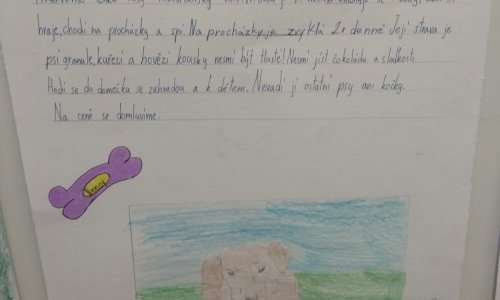 hraje, chodí na procházky a spí. Na procházky je zvyklá 2x denně. Její strava je
psí granule, kuřecí a hovězí kousky nesmí být tlusté! Nesmí jíst čokoládu a sladkosti.
Hodí se do domečka se zahradou a k dětem. Nevadí jí ostatní psy ani kočky.
Na ceně se domluvíme.